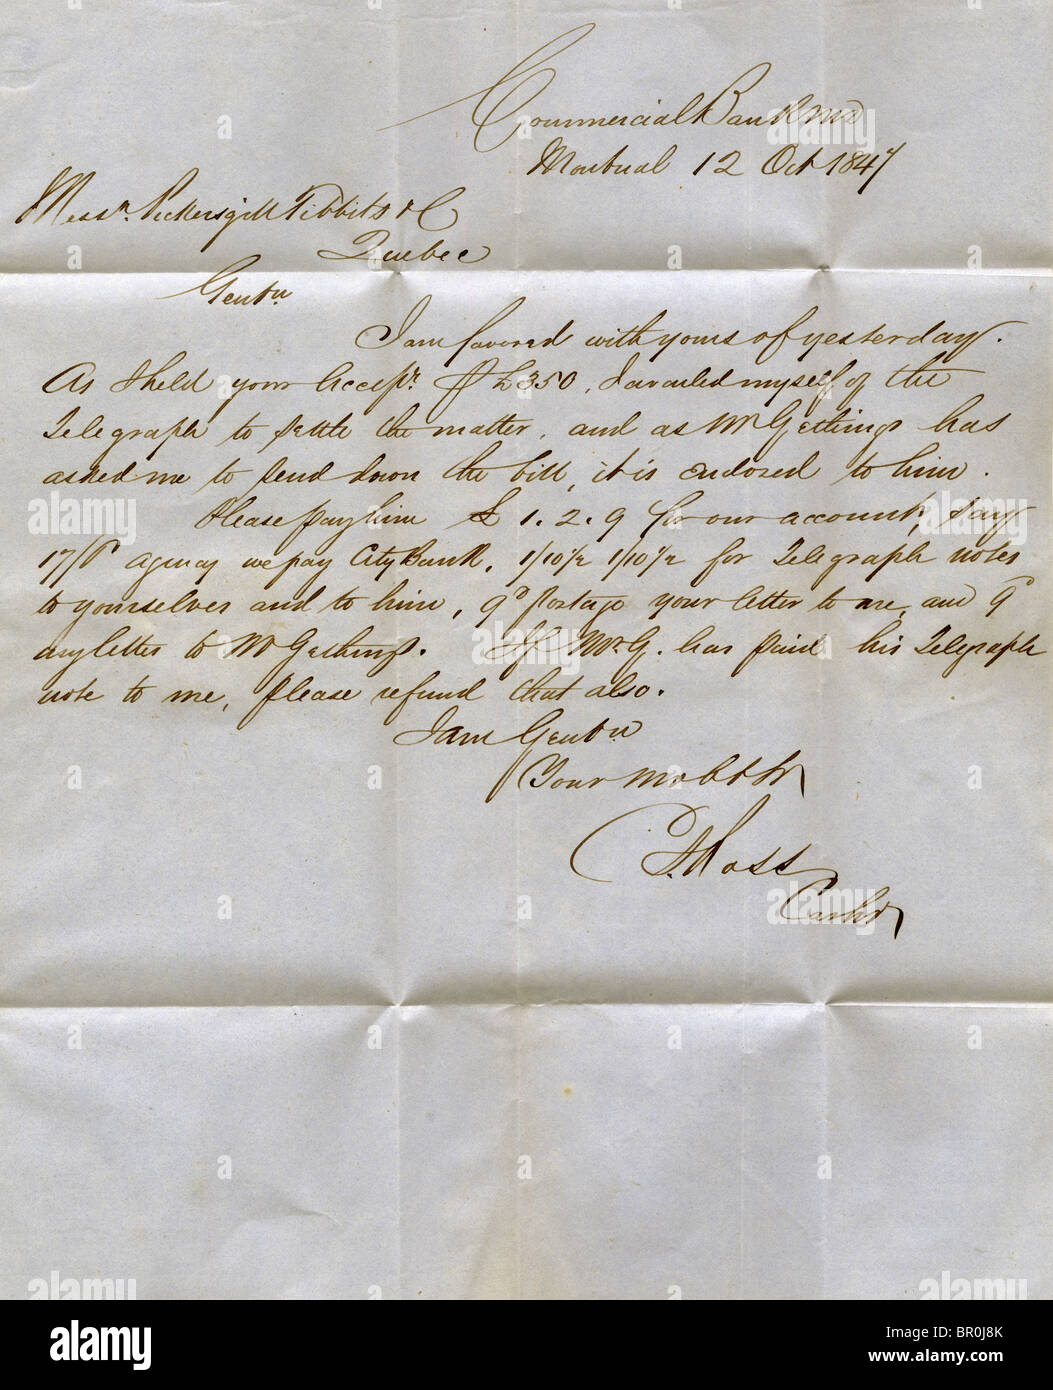 Commercial Bank MD
Montreal 12 Oct 1847
Messrs. Pickersgill Tibbits & C
Quebec
Gentn
I am favored with yours of yesterday.
As I held your Accepce. of £350, I availed myself of the
Telegraph to settle the matter, and as Mr Gethings has
asked me to send down the bill, it is enclosed to him.
Please pay him £ 1. 2. 9 for our account, say
17/6 agency we pay City Bank, 1/10½ 1/10½ for Telegraph notes
to yourselves and to him, 9d postage your letter to me, and 9d
my letter to Mr Gethings. If Mr G. has paid his Telegraph
note to me, please refund that also.
I am Gentn
Your mo obt St
Ross
Cashr
alamy
Image ID: BR0J8K
www.alamy.com